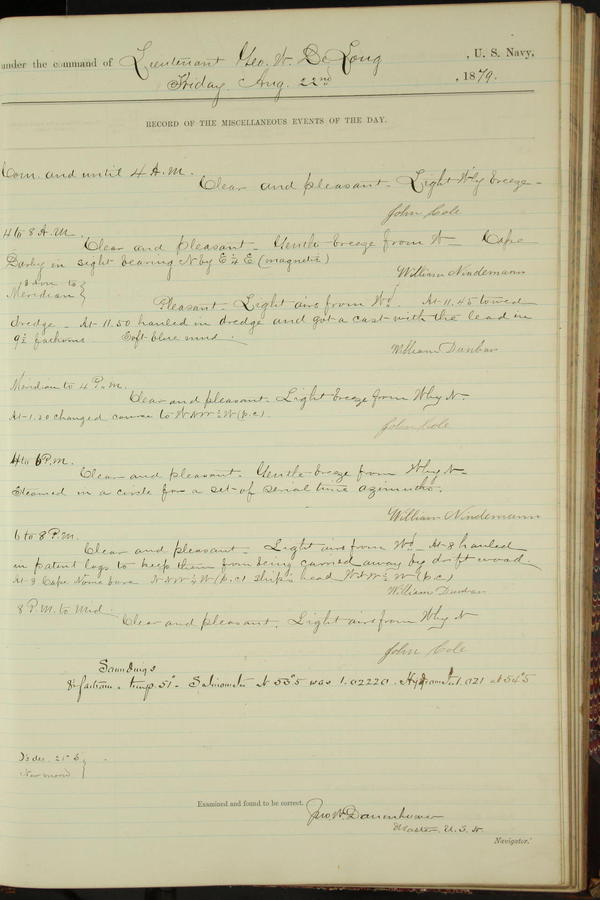 under the command of Lieutenant Geo. W. De Long, U. S. Navy.
Friday, Aug. 22nd, 1879.
RECORD OF THE MISCELLANEOUS EVENTS OF THE DAY.
Com. and until 4 A.M.
Clear and pleasant. Light W'ly breeze.
John Cole
4 to 8 A.M.
Clear and pleasant. Gentle breeze from W. Cape
Darby in sight bearing N by E ½ E (magnetic)
William Nindemann
Meridian
Pleasant. Light airs from Wd. At 11.45 towed
dredge. At 11.50 hauled in dredge and got a cast with the lead in
9½ fathoms. Soft blue mud.
William Dunbar
Meridian to 4 P.M.
Clear and pleasant. Light breeze from W by N
At 1.20 changed course to WNW ½ W (p.c.)
John Cole
4 to 6 P.M.
Clear and pleasant. Gentle breeze from W by N.
Steamed in a circle for a set of serial time azimuths.
William Nindemann
6 to 8 P.M.
Clear and pleasant. Light airs from Wd. At 8 hauled
in patent logs to keep them from being carried away by drift wood.
At 8 Cape Nome bore NNW ½ W (p.c.) ship's head WNW ½ W (p.c.)
William Dunbar
8 P.M. to Mid.
Clear and pleasant. Light airs from W by N
John Cole
Soundings
temp. 51°. Salinometer at 53°.5 was 1.02220. Hydrometer 1.021 at 54°.5
Examined and found to be correct.
Jno. W. Danenhower
Master, U.S.N.
Navigator.